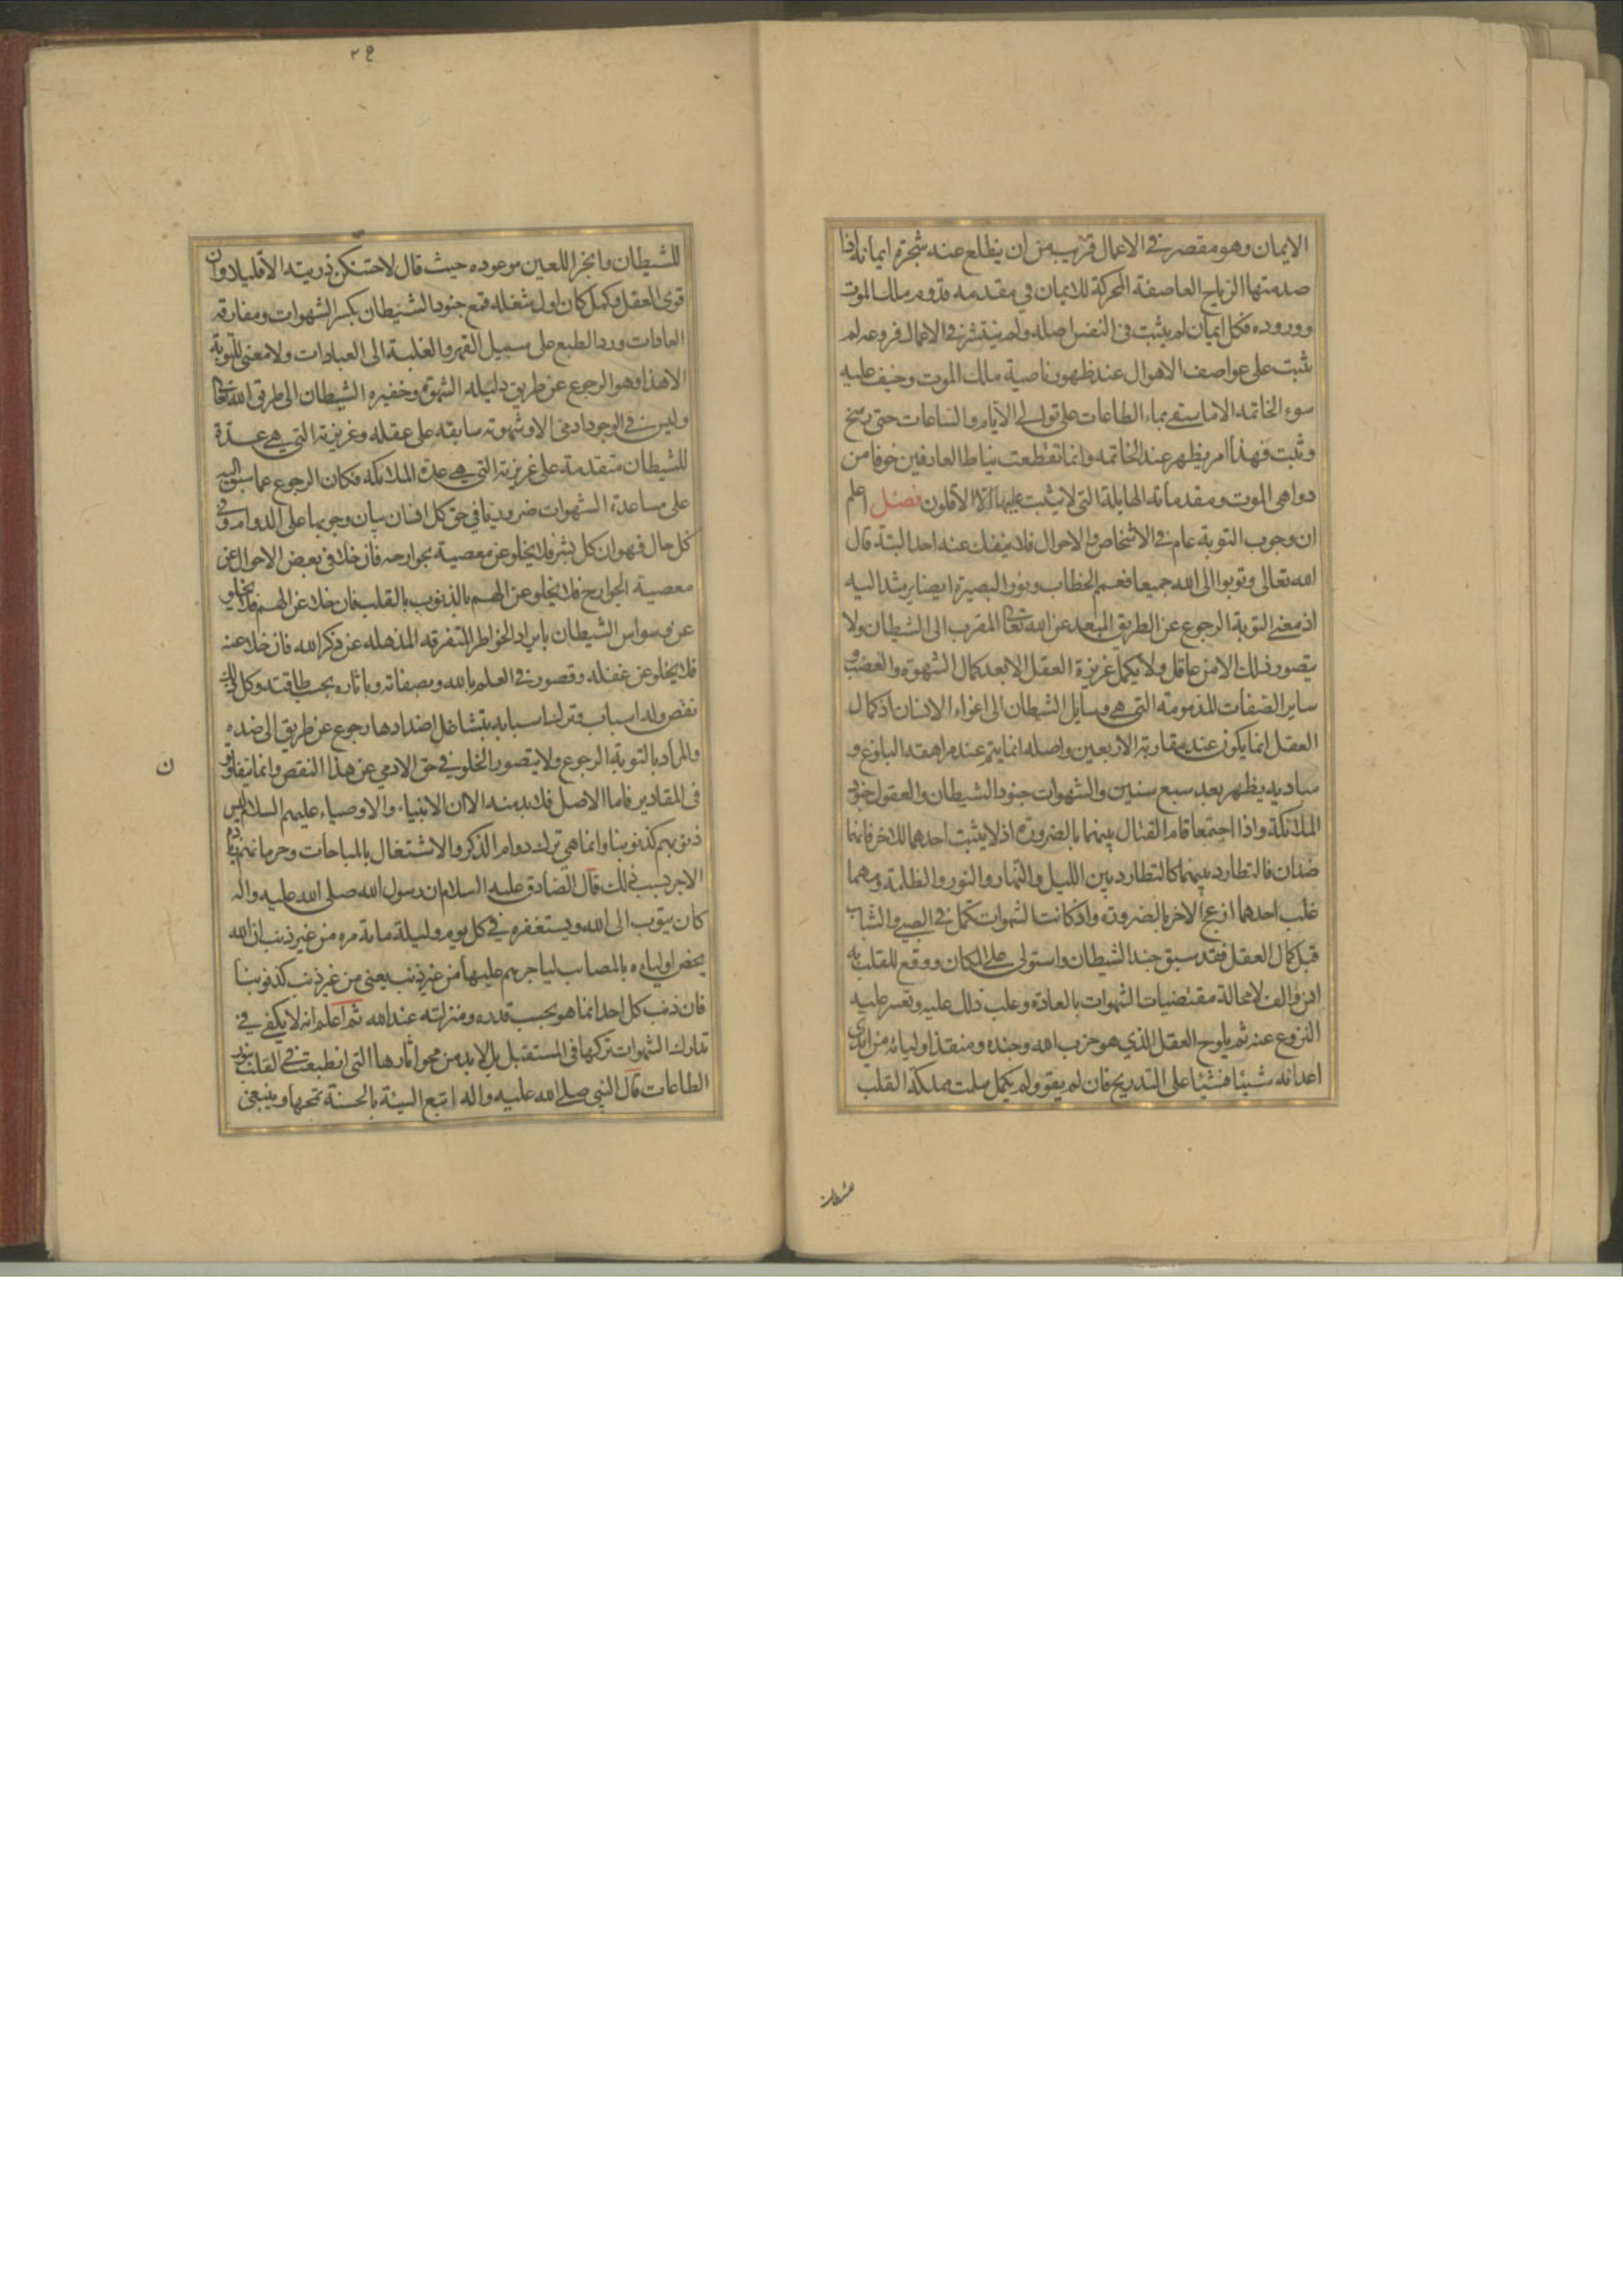 الايمان وهو مقصر فى الاعمال قريب من ان ينقلع عنه شجرة ايمانه اذا
صدمتها الرياح العاصفة المحركة للايمان في مقدمه قدوم ملك الموت
ووروده فكل ايمان لم يثبت فى النفس اصله ولم ينتشر فى الاعمال فروعه لم
يثبت على عواصف الاهوال عند ظهور ناصية ملك الموت وخيف عليه
سوء الخاتمه الا ما سقى بماء الطاعات على توالى الايام والساعات حتى رسخ
وثبت فهذا امر يظهر عند الخاتمه وانما تقطعت نياط العارفين خوفا من
دواهى الموت ومقدماته الهايلة التى لا يثبت عليها الا الاقلون فصل اعلم
ان وجوب التوبة عام فى الاشخاص والاحوال فلا ينفك عنه احد البتة قال
الله تعالى وتوبوا الى الله جميعا فعمم الخطاب ونور البصيرة ايضا يرشد اليه
اذ معنى التوبة الرجوع عن الطريق المبعد عن الله تعا المقرب الى الشيطان ولا
يتصور ذلك الا من عاقل ولا يكمل غريزة العقل الا بعد كمال الشهوة والغضب و
ساير الصفات المذمومة التى هى وسايل الشيطان الى اغواء الانسان اذ كمال
العقل انما يكون عند مقاربة الاربعين واصله انما يتم عند مراهقة البلوغ و
مباديه يظهر بعد سبع سنين والشهوات جنود الشيطان والعقول جنود
الملائكة واذا اجتمعا قام القتال بينهما بالضرورة اذ لا يثبت احدهما للاخر فانهما
ضدان فالتطارد بينهما كالتطارد بين الليل والنهار والنور والظلمة ومهما
غلب احدهما ازعج الاخر بالضرورة واذ كانت الشهوات تكمل فى الصبى والشاب
قبل كمال العقل فقد سبق جند الشيطان واستولى على المكان ووقع للقلب به
انس والف لا محالة مقتضيات الشهوات بالعادة وغلب ذلك عليه وتعسر عليه
النزوع عنه ثم يلوح العقل الذي هو حزب الله وجنده ومنقذ اوليائه من ايدى
اعدائه شيئا فشيئا على التدريج فان لم يقو ولم يكمل سلمت مملكة القلب
للشيطان
٢٤
للشيطان وانجز اللعين موعوده حيث قال لاحتنكن ذريته الا قليلا وان
قوى العقل وكمل كان اول شغله قمع جنود الشيطان بكسر الشهوات ومفارقة
العادات ورد الطبع على سبيل القهر والغلبة الى العبادات ولا معنى للتوبة
الا هذا وهو الرجوع عن طريق دليله الشهوة وخفيره الشيطان الى طرق الله تعا
وليس فى الوجود ادمى الا وشهوته سابقه على عقله وغريزته التى هى عدة
للشيطان متقدمة على غريزته التى هى عدة الملائكة فكان الرجوع عما سبق اليه
على مساعدة الشهوات ضروريا في حق كل انسان بيان وجوبها على الدوام وفى
كل حال فهو ان كل بشر فلا يخلو عن معصية بجوارحه فان خلا فى بعض الاحوال عن
معصية الجوارح فلا يخلو عن الهم بالذنوب بالقلب فان خلا عن الهم فلا يخلو
عن وسواس الشيطان بايراد الخواطر المتفرقه المذهله عن ذكر الله فان خلا عنه
فلا يخلو عن غفلة وقصور فى العلم بالله وبصفاته وباثاره بحسب طاقته وكل ذلك
نقص وله اسباب وترك اسبابه بتشاغل اضدادها رجوع عن طريق الى ضده
والمراد بالتوبة الرجوع ولا يتصور الخلو في حق الادمي عن هذا النقص وانما يتفاوتون
ن
فى المقادير فاما الاصل فلا بد منه الا ان الانبياء والاوصياء عليهم السلام ليس
ذنوبهم كذنوبنا وانما هى ترك دوام الذكر والاشتغال بالمباحات وحرمانهم زيادة
الاجر بسبب ذلك قال الصادق عليه السلام ان رسول الله صلى الله عليه واله
كان يتوب الى الله ويستغفره فى كل يوم وليلة ماية مره من غير ذنب ان الله
يخص اولياءه بالمصائب لياجرهم عليها من غير ذنب يعنى من غير ذنب كذنوبنا
فان ذنب كل احد انما هو بحسب قدره ومنزلته عند الله ثم اعلم انه لا يكفى فى
تدارك الشهوات تركها فى المستقبل بل لا بد من محو اثارها التى انطبعت فى القلب بنور
الطاعات قال النبى صلى الله عليه واله اتبع السيئة بالحسنة تمحها وينبغى